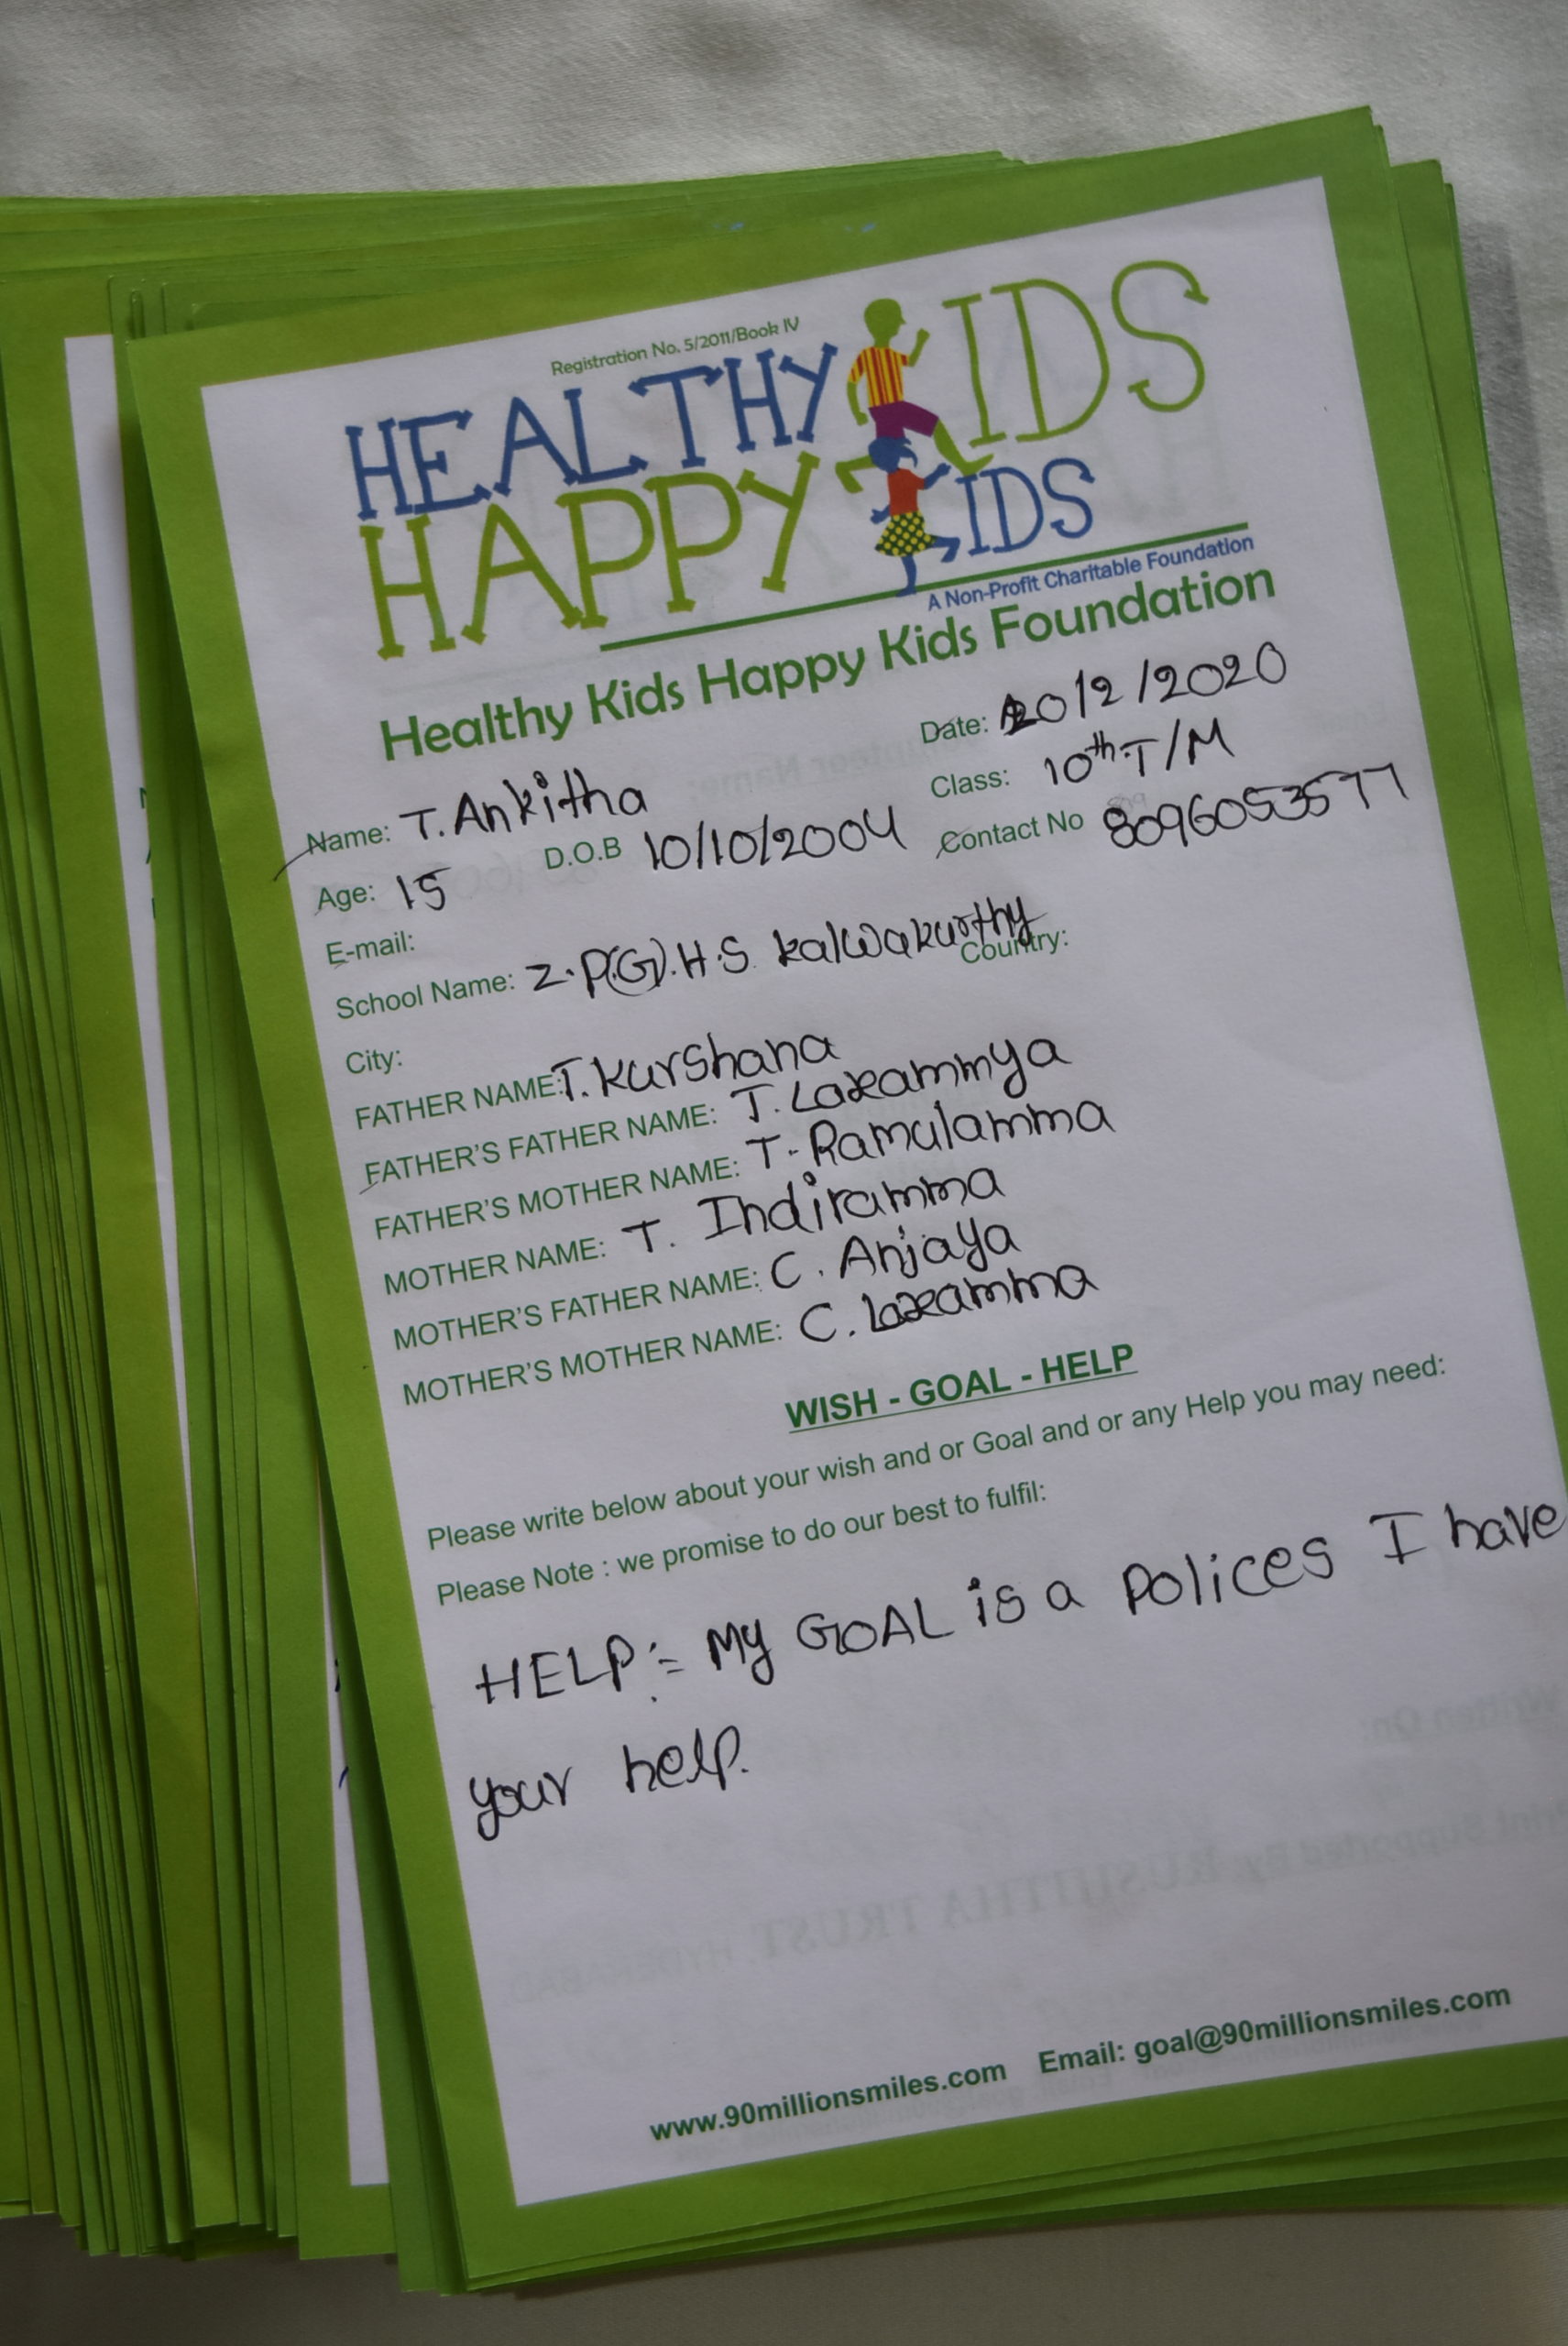 Registration No. 5/2011/Book IV
HEALTHY KIDS
HAPPY KIDS
A Non-Profit Charitable Foundation
Healthy Kids Happy Kids Foundation
Date: 20/2/2020
Name: T. Ankitha Class: 10th T/M
Age: 15 D.O.B 10/10/2004 Contact No 8096053577
E-mail:
School Name: Z.P(G).H.S kalwakurthy Country:
City:
FATHER NAME: T. Kurshana
FATHER'S FATHER NAME: T. Laxammya
FATHER'S MOTHER NAME: T. Ramulamma
MOTHER NAME: T. Indiramma
MOTHER'S FATHER NAME: C. Anjaya
MOTHER'S MOTHER NAME: C. laxamma
WISH - GOAL - HELP
Please write below about your wish and or Goal and or any Help you may need:
Please Note : we promise to do our best to fulfil:
HELP:= My GOAL is a polices I have
your help.
www.90millionsmiles.com Email: goal@90millionsmiles.com